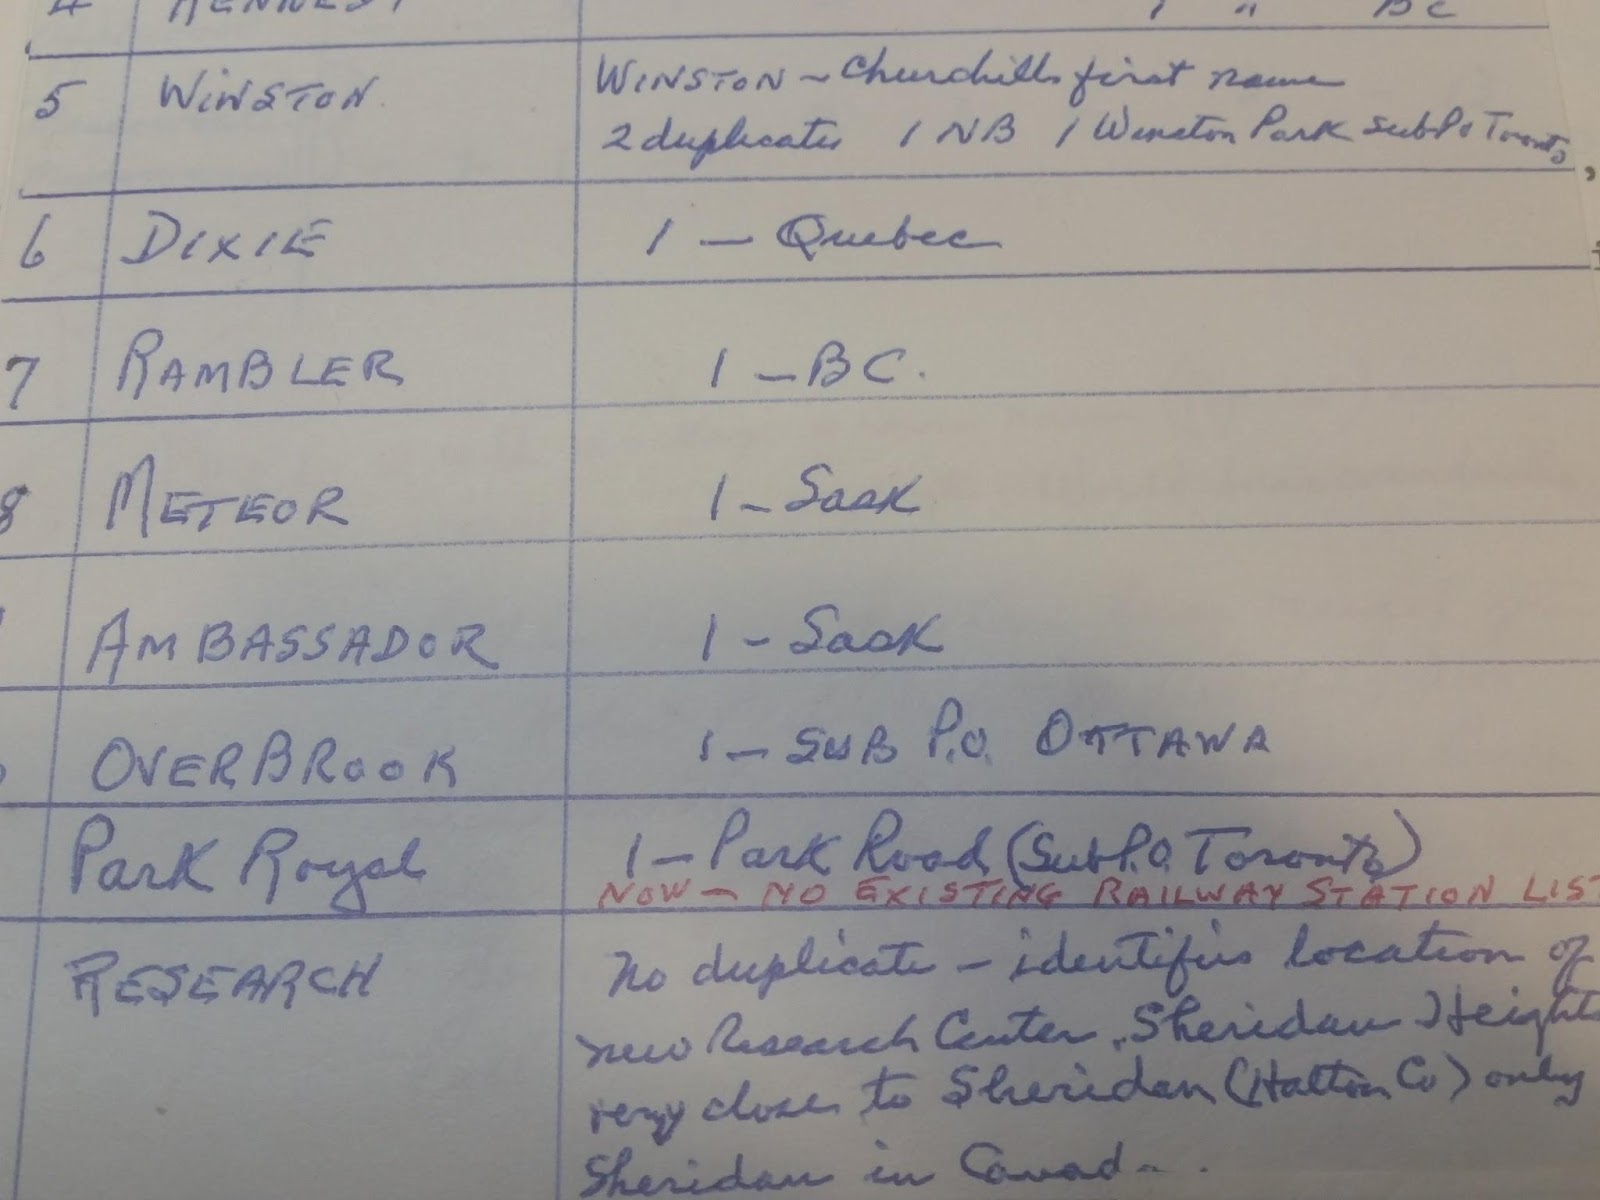 4 HENNESY 1 " BC
5 WINSTON. WINSTON - Churchills first name
2 duplicates 1 NB 1 Winston Park Sub P.O Toronto,
6 DIXIE 1 - Quebec
7 RAMBLER 1 - BC.
8 METEOR 1 - Sask
AMBASSADOR 1 - Sask
OVERBROOK 1 - SUB P.O. OTTAWA
Park Royal 1 - Park Road (Sub P.O. Toronto)
NOW - NO EXISTING RAILWAY STATION LIST
RESEARCH No duplicate - identifies location of
new Research Center. Sheridan Heights
very close to Sheridan (Halton Co) only
Sheridan in Canada.